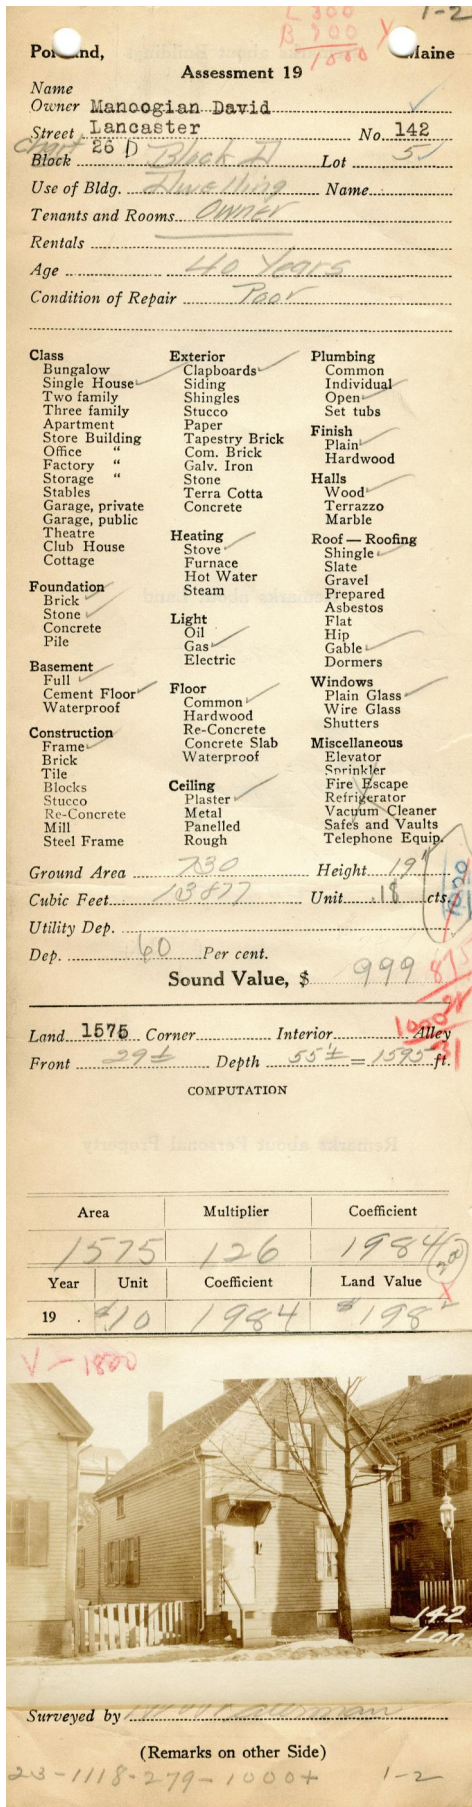 L 300
1-2
B 700
1000
Portland, Maine
Assessment 19
Name
Owner Manoogian David
Street Lancaster No. 142
Chart 26 D
Block Block D Lot 5
Use of Bldg. Dwelling Name
Tenants and Rooms Owner
Rentals
Age 40 Years
Condition of Repair Poor
Class
Bungalow
Single House
Two family
Three family
Apartment
Store Building
Office "
Factory "
Storage "
Stables
Garage, private
Garage, public
Theatre
Club House
Cottage
Foundation
Brick
Stone
Concrete
Pile
Basement
Full
Cement Floor
Waterproof
Construction
Frame
Brick
Tile
Blocks
Stucco
Re-Concrete
Mill
Steel Frame
Exterior
Clapboards
Siding
Shingles
Stucco
Paper
Tapestry Brick
Com. Brick
Galv. Iron
Stone
Terra Cotta
Concrete
Heating
Stove
Furnace
Hot Water
Steam
Light
Oil
Gas
Electric
Floor
Common
Hardwood
Re-Concrete
Concrete Slab
Waterproof
Ceiling
Plaster
Metal
Panelled
Rough
Plumbing
Common
Individual
Open
Set tubs
Finish
Plain
Hardwood
Halls
Wood
Terrazzo
Marble
Roof — Roofing
Shingle
Slate
Gravel
Prepared
Asbestos
Flat
Hip
Gable
Dormers
Windows
Plain Glass
Wire Glass
Shutters
Miscellaneous
Elevator
Sprinkler
Fire Escape
Refrigerator
Vacuum Cleaner
Safes and Vaults
Telephone Equip.
Ground Area 730 Height 19'
Cubic Feet 13877 Unit .18 cts.
Utility Dep.
Dep. 60 Per cent.
Sound Value, $ 999
1000
Land 1575 Corner Interior Alley
Front 29± Depth 55'± = 1595 ft.
COMPUTATION
Area Multiplier Coefficient
1575 126 1984
Year Unit Coefficient Land Value
19 . $10 1984 $198
V - 1820
142
Lan
Surveyed by
(Remarks on other Side)
23-1118-279-1000+ 1-2